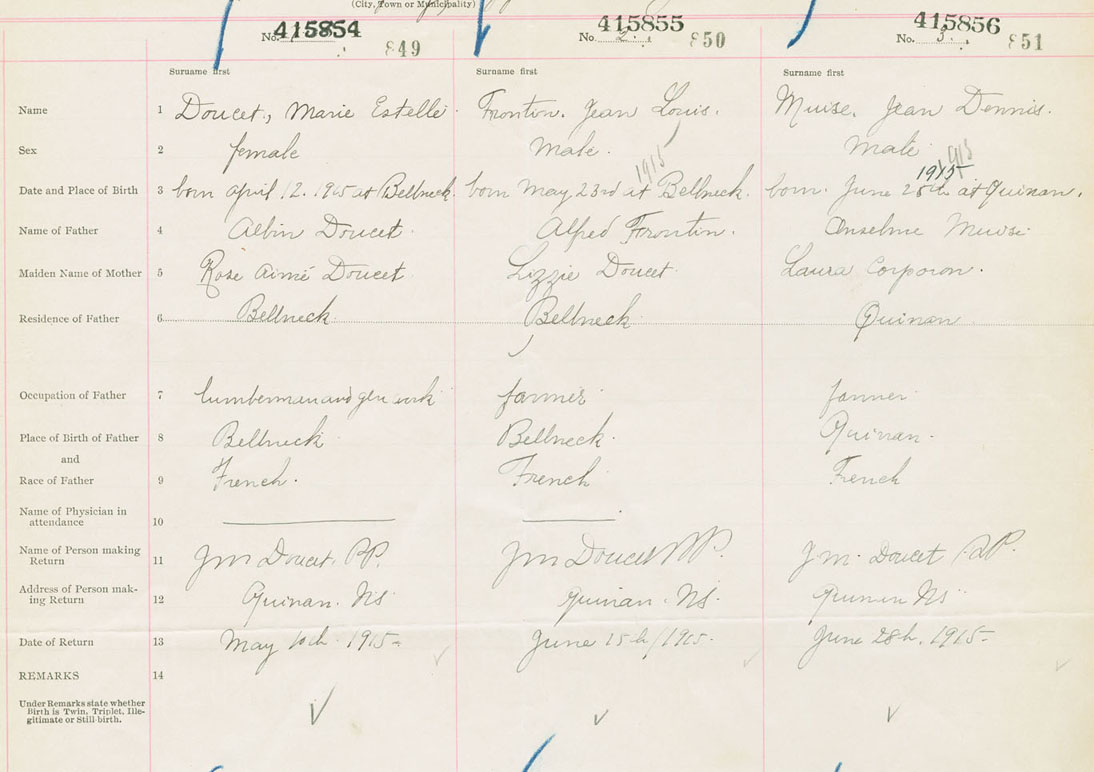 (City, Town or Municipality)
415854 415855 415856
No. 1 849 No. 2 850 No. 3 851
Surname first Surname first Surname first
Name 1 Doucet, Marie Estelle Fronton, Jean Louis. Muise, Jean Dennis.
Sex 2 female Male. Male
1915 1915
Date and Place of Birth 3 born april 12. 1915 at Bellneck. born May 23rd at Bellneck. born June 25th at Quinan.
Name of Father 4 Albin Doucet. Alfred Frontin. Anselme Muise
Maiden Name of Mother 5 Rose Aimé Doucet Lizzie Doucet Laura Corporon.
Residence of Father 6 Bellneck Bellneck Quinan
Occupation of Father 7 lumberman and gen work farmer farmer
Place of Birth of Father 8 Bellneck Bellneck. Quinan.
and
Race of Father 9 French. French French
Name of Physician in
attendance 10
Name of Person making
Return 11 J M Doucet PP. J M Doucet PP. J. M. Doucet PP.
Address of Person mak-
ing Return 12 Quinan. NS Quinan. NS. Quinan NS
Date of Return 13 May 10th 1915 June 15th/1915. June 28th, 1915
REMARKS 14
Under Remarks state whether
Birth is Twin, Triplet, Ille-
gitimate or Still-birth.